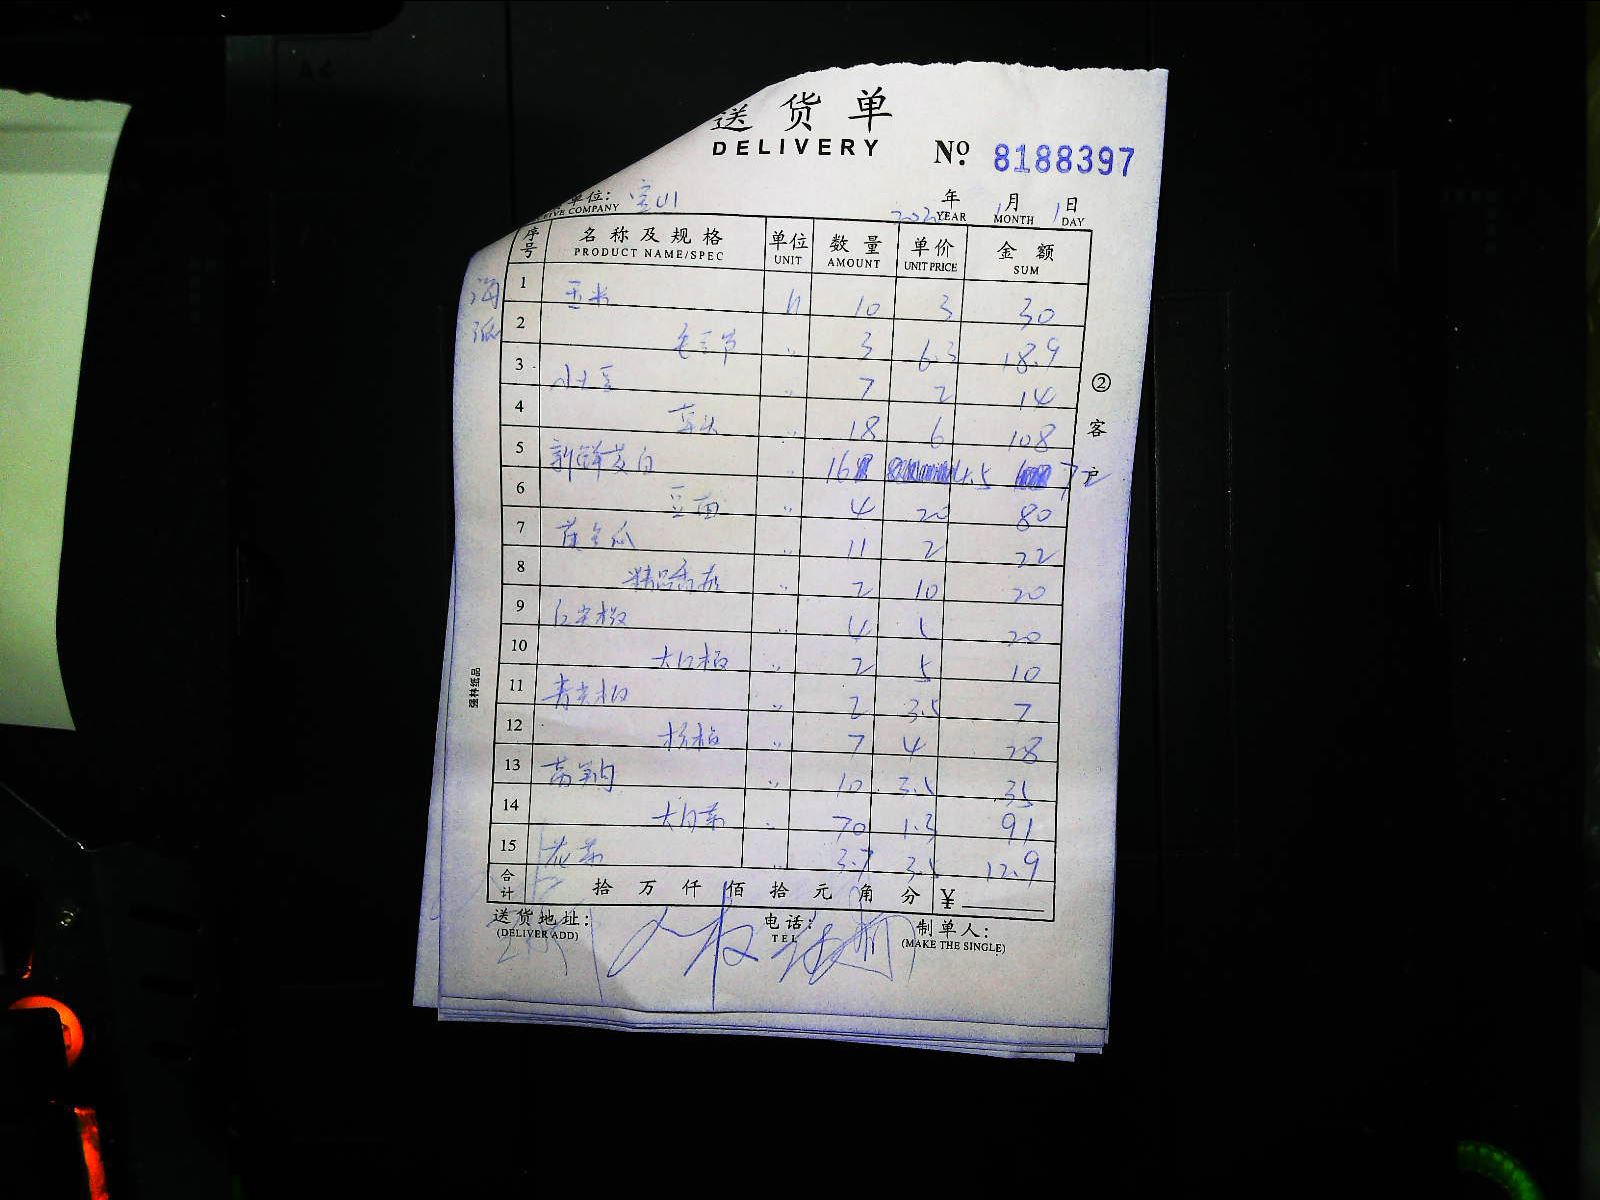 送货单
DELIVERY
No. 8188397
单位: 宝山
年 1月 1日
YEAR MONTH DAY
序号 名称及规格 单位 数量 单价 金额
PRODUCT NAME/SPEC UNIT AMOUNT UNIT PRICE SUM
1 玉米 10 3 30
2 3 6.3 18.9
3 小土豆 〃 7 2 14
4 〃 18 6 108
5 新鲜黄白 〃 16 4.5 72
6 豆面 〃 4 20 80
7 黄金瓜 〃 11 2 22
8 精品香菇 〃 2 10 20
9 〃 4 5 20
10 〃 2 5 10
11 青尖椒 〃 2 3.5 7
12 〃 7 4 28
13 莴笋 〃 10 3.5 35
14 大白菜 〃 70 1.3 91
15 花菜 〃 3.7 3.5 12.9
合计 拾 万 仟 佰 拾 元 角 分 ¥
送货地址: 电话: 制单人:
(DELIVER ADD) TEL (MAKE THE SINGLE)
②客户
强林纸品